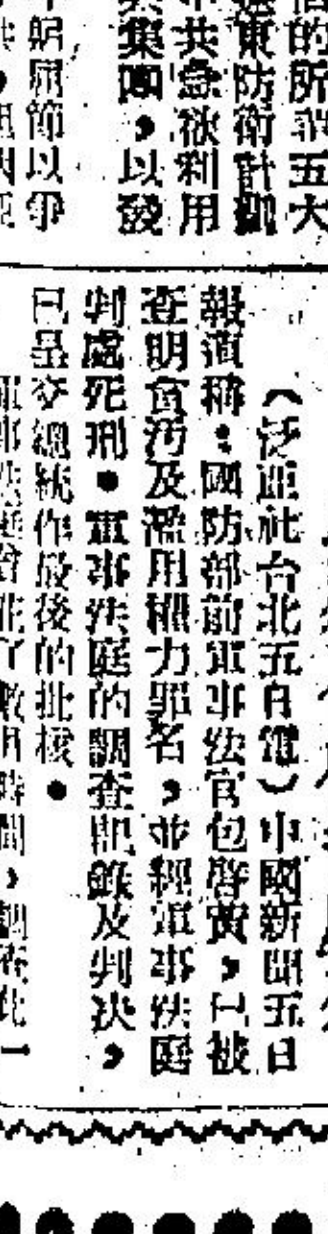 的所謂五大
遠東防衛計劃
中共急欲利用
集團，以發
躬屈節以爭
（泛亞社台北五日電）中國新聞五日
報道稱：國防部前軍事法官包啓黃，已被
查明貪污及濫用權力罪名，並經軍事法庭
判處死刑。軍事法庭的調查記錄及判决，
已呈交總統作最後的批核。
時間，調查此一